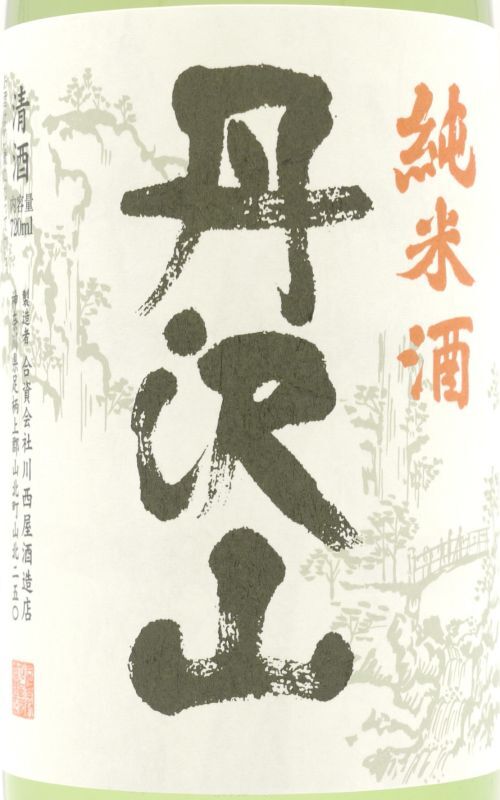 純米酒
丹沢山
清酒
内容量
720ml
製造者 合資会社川西屋酒造店
神奈川県足柄上郡山北町山北二五〇